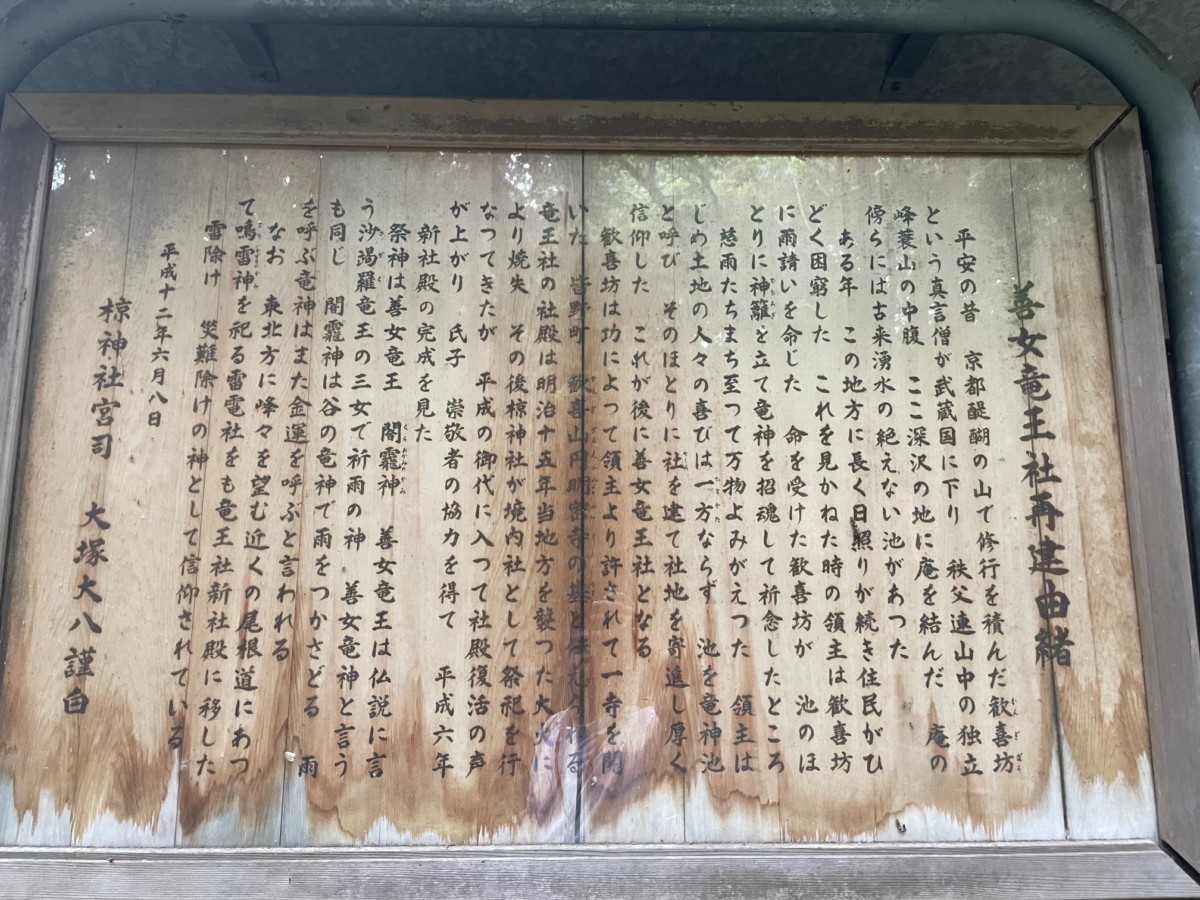 善女竜王社再建由緒
平安の昔　京都醍醐の山で修行を積んだ歓喜坊
という真言僧が武蔵国に下り　秩父連山中の独立
峰蓑山の中腹　ここ深沢の地に庵を結んだ　庵の
傍らには古来湧水の絶えない池があつた
ある年　この地方に長く日照りが続き住民がひ
どく困窮した　これを見かねた時の領主は歓喜坊
に雨請いを命じた　命を受けた歓喜坊が　池のほ
とりに神籬を立て竜神を招魂して祈念したところ
慈雨たちまち至つて万物よみがえつた　領主は
じめ土地の人々の喜びは一方ならず　池を竜神池
と呼び　そのほとりに社を建て社地を寄進し厚く
信仰した　これが後に善女竜王社となる
歓喜坊は功によつて領主より許されて一寺を開
いた　皆野町　歓喜山円明密寺の基と伝えられる
竜王社の社殿は明治十五年当地方を襲つた大火に
より焼失　その後椋神社が境内社として祭祀を行
なつてきたが　平成の御代に入つて社殿復活の声
が上がり　氏子　崇敬者の協力を得て　平成六年
新社殿の完成を見た
祭神は善女竜王　闇龗神　善女竜王は仏説に言
う沙竭羅竜王の三女で祈雨の神　善女竜神と言う
も同じ　闇龗神は谷の竜神で雨をつかさどる　雨
を呼ぶ竜神はまた金運を呼ぶと言われる
なお　東北方に峰々を望む近くの尾根道にあつ
て鳴雷神を祀る雷電社をも竜王社新社殿に移した
雷除け　災難除けの神として信仰されている
平成十二年六月八日
椋神社宮司　大塚大八謹白